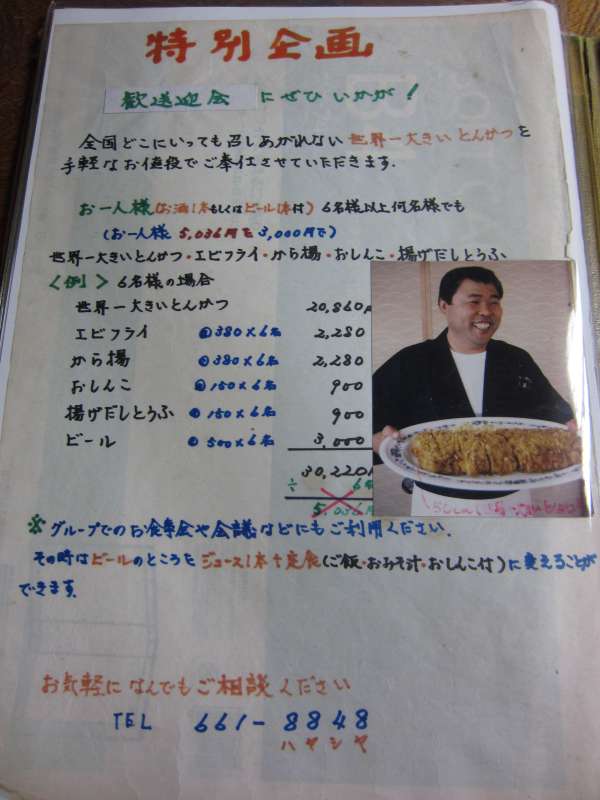 特別企画
歓送迎会 にぜひいかが!
全国どこにいっても召しあがれない 世界一大きい とんかつを
手軽なお値段でご奉仕させていただきます.
お一人様 (お酒1本もしくはビール1本付) 6名様以上何名様でも
(お一人様 5,036円を3,000円で)
世界一大きいとんかつ・エビフライ・から揚・おしんこ・揚げだしとうふ
<例> 6名様の場合
世界一大きいとんかつ 20,860
エビフライ @380×6名 2,280
から揚 @380×6名 2,280
おしんこ @150×6名 900
揚げだしとうふ @150×6名 900
ビール @500×6名 3,000
30,220
÷ 6
5,036
※グループでのお食事会や会議などにもご利用ください.
その時はビールのところを ジュース1本+定食(ご飯・おみそ汁・おしんこ付)に変えることが
できます.
お気軽になんでもご相談ください
TEL 661-8848
ハヤシヤ